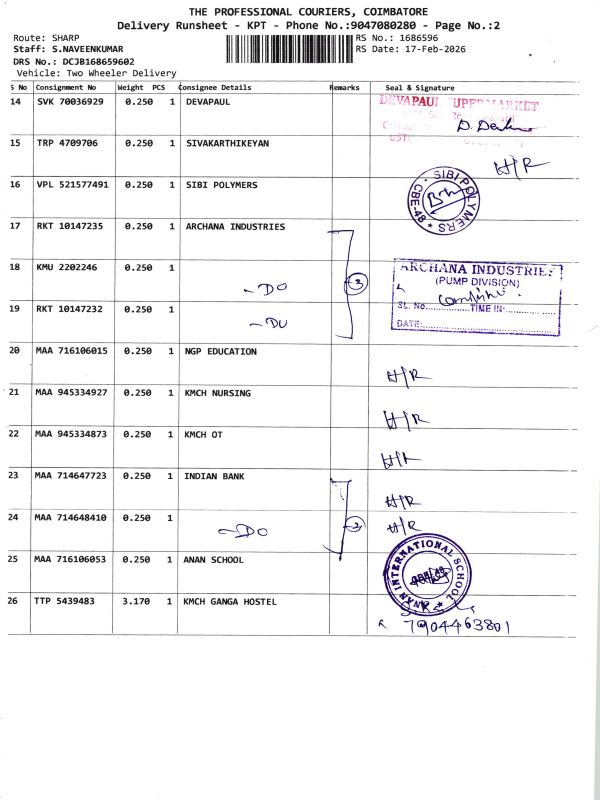 THE PROFESSIONAL COURIERS, COIMBATORE
Delivery Runsheet - KPT - Phone No.:9047080280 - Page No.:2
Route: SHARP
RS No.: 1686596
Staff: S.NAVEENKUMAR
RS Date: 17-Feb-2026
DRS No.: DCJB168659602
Vehicle: Two Wheeler Delivery
S No Consignment No Weight PCS Consignee Details Remarks Seal & Signature
14 SVK 70036929 0.250 1 DEVAPAUL DEVAPAUL UPERMARKET
15 TRP 4709706 0.250 1 SIVAKARTHIKEYAN H/R
16 VPL 521577491 0.250 1 SIBI POLYMERS SIBI POLYMERS CBE-48
17 RKT 10147235 0.250 1 ARCHANA INDUSTRIES
18 KMU 2202246 0.250 1 -DO 3
ARCHANA INDUSTRIES
(PUMP DIVISION)
SL. No. TIME IN:
DATE:
19 RKT 10147232 0.250 1 -DO
20 MAA 716106015 0.250 1 NGP EDUCATION H/R
21 MAA 945334927 0.250 1 KMCH NURSING H/R
22 MAA 945334873 0.250 1 KMCH OT H/R
23 MAA 714647723 0.250 1 INDIAN BANK H/R
24 MAA 714648410 0.250 1 -DO 2 H/R
25 MAA 716106053 0.250 1 ANAN SCHOOL ANAN INTERNATIONAL SCHOOL
26 TTP 5439483 3.170 1 KMCH GANGA HOSTEL 7904463801